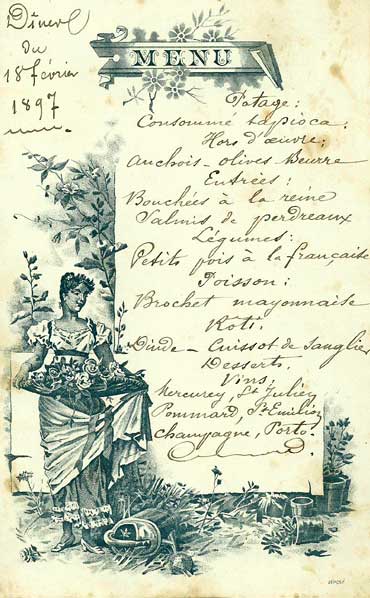 Dîner
du
18 février
1897
MENU
Potage:
Consommé tapioca:
Hors d'œuvre;
Anchois - olives beurre
Entrées:
Bouchées à la reine
Salmis de perdreaux
Légumes:
Petits pois à la française
Poisson:
Brochet mayonnaise
Roti.
Dinde - Cuissot de sanglier
Desserts.
Vins;
Mercurey, St Julien
Pommard, St Emilion
Champagne, Porto.